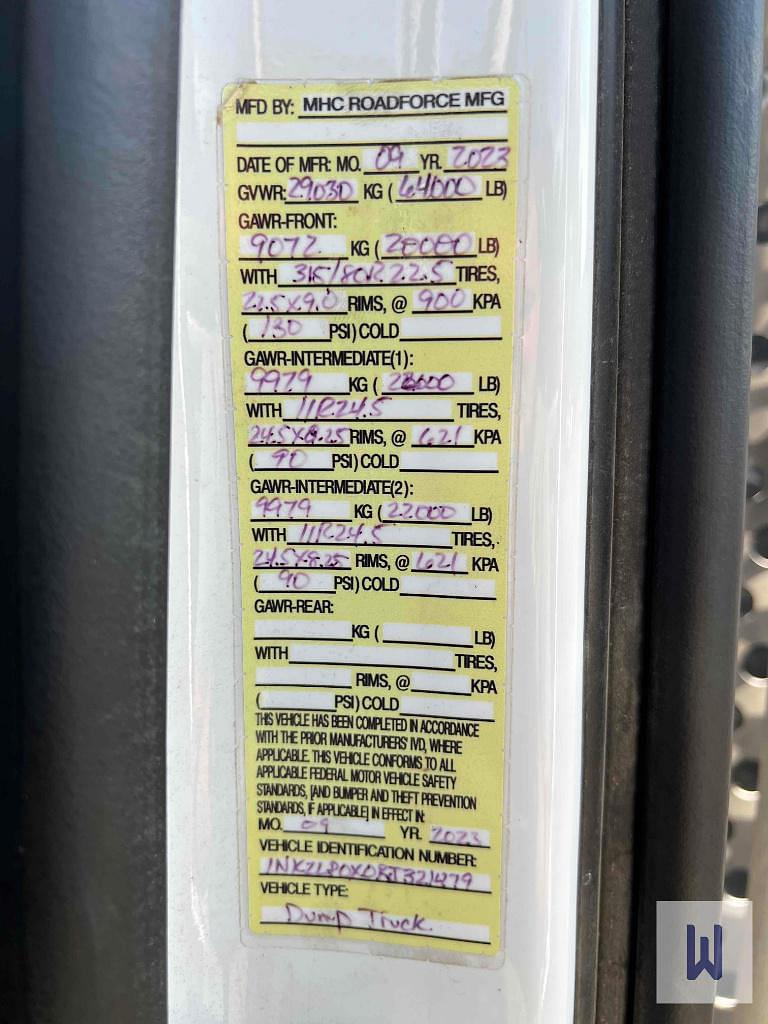 MFD BY: MHC ROADFORCE MFG
DATE OF MFR: MO. 09 YR. 2023
GVWR: 29030 KG (64000 LB)
GAWR-FRONT:
9072 KG (20000 LB)
WITH 315/80R22.5 TIRES,
22.5X9.0 RIMS, @ 900 KPA
(130 PSI) COLD
GAWR-INTERMEDIATE(1):
9979 KG (22000 LB)
WITH 11R24.5 TIRES,
24.5X8.25 RIMS, @ 621 KPA
(90 PSI) COLD
GAWR-INTERMEDIATE(2):
9979 KG (22000 LB)
WITH 11R24.5 TIRES,
24.5X8.25 RIMS, @ 621 KPA
(90 PSI) COLD
GAWR-REAR:
KG ( LB)
WITH TIRES,
RIMS, @ KPA
( PSI) COLD
THIS VEHICLE HAS BEEN COMPLETED IN ACCORDANCE
WITH THE PRIOR MANUFACTURERS' IVD, WHERE
APPLICABLE. THIS VEHICLE CONFORMS TO ALL
APPLICABLE FEDERAL MOTOR VEHICLE SAFETY
STANDARDS, [AND BUMPER AND THEFT PREVENTION
STANDARDS, IF APPLICABLE] IN EFFECT IN:
MO. 09 YR. 2023
VEHICLE IDENTIFICATION NUMBER:
VEHICLE TYPE:
Dump Truck.
W